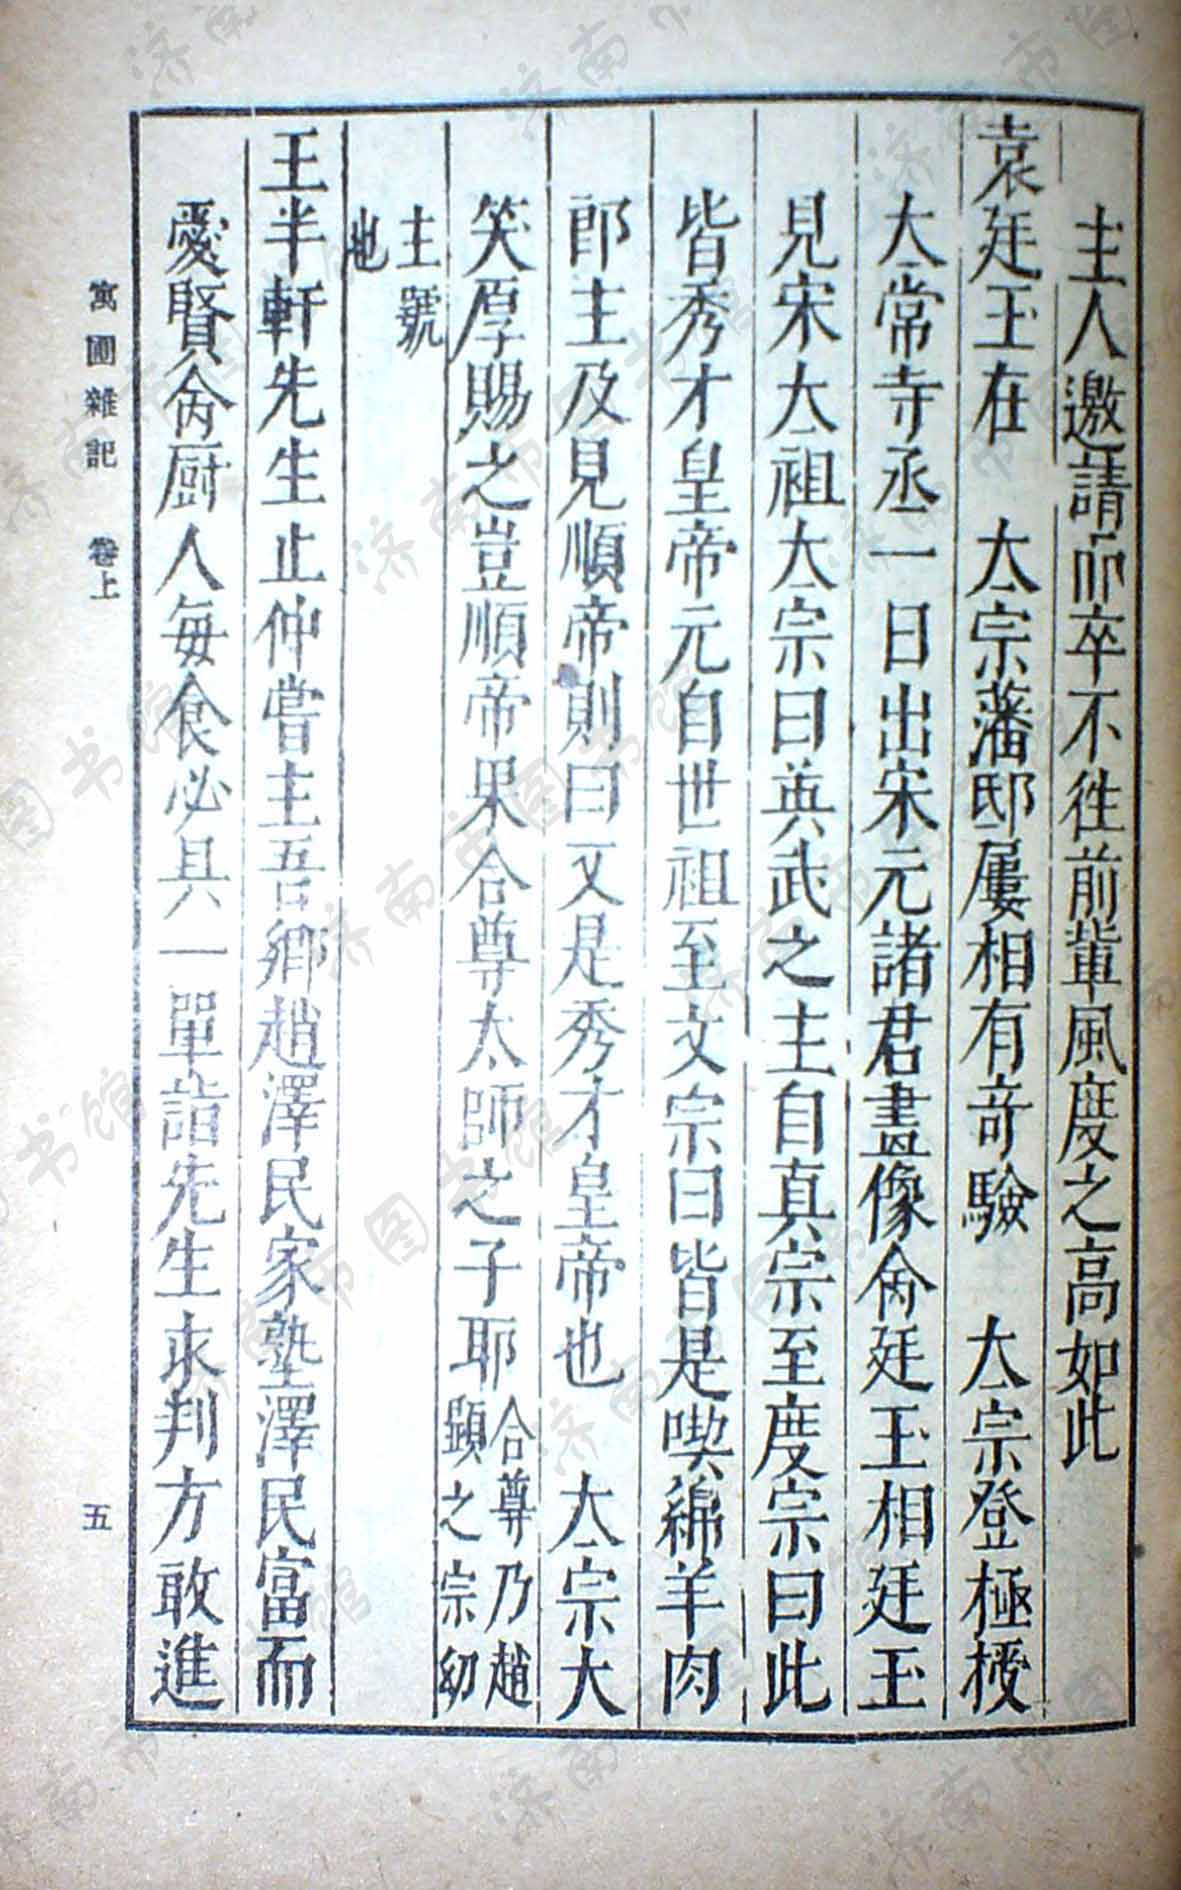 主人邀請而卒不徃前輩風度之高如此
袁廷玉在　太宗藩邸屢相有奇驗　太宗登極授
太常寺丞一日出宋元諸君畫像命廷玉相廷玉
見宋太祖太宗曰英武之主自真宗至度宗曰此
皆秀才皇帝元自世祖至文宗曰皆是喫綿羊肉
郎主及見順帝則曰又是秀才皇帝也　太宗大
笑厚賜之豈順帝果合尊太師之子耶合尊乃趙㬎之宗幼
主號也
王半軒先生止仲嘗主吾鄉趙澤民家塾澤民富而
愛賢命厨人每食必具一單詣先生求判方敢進
寓圃雜記　卷上　五